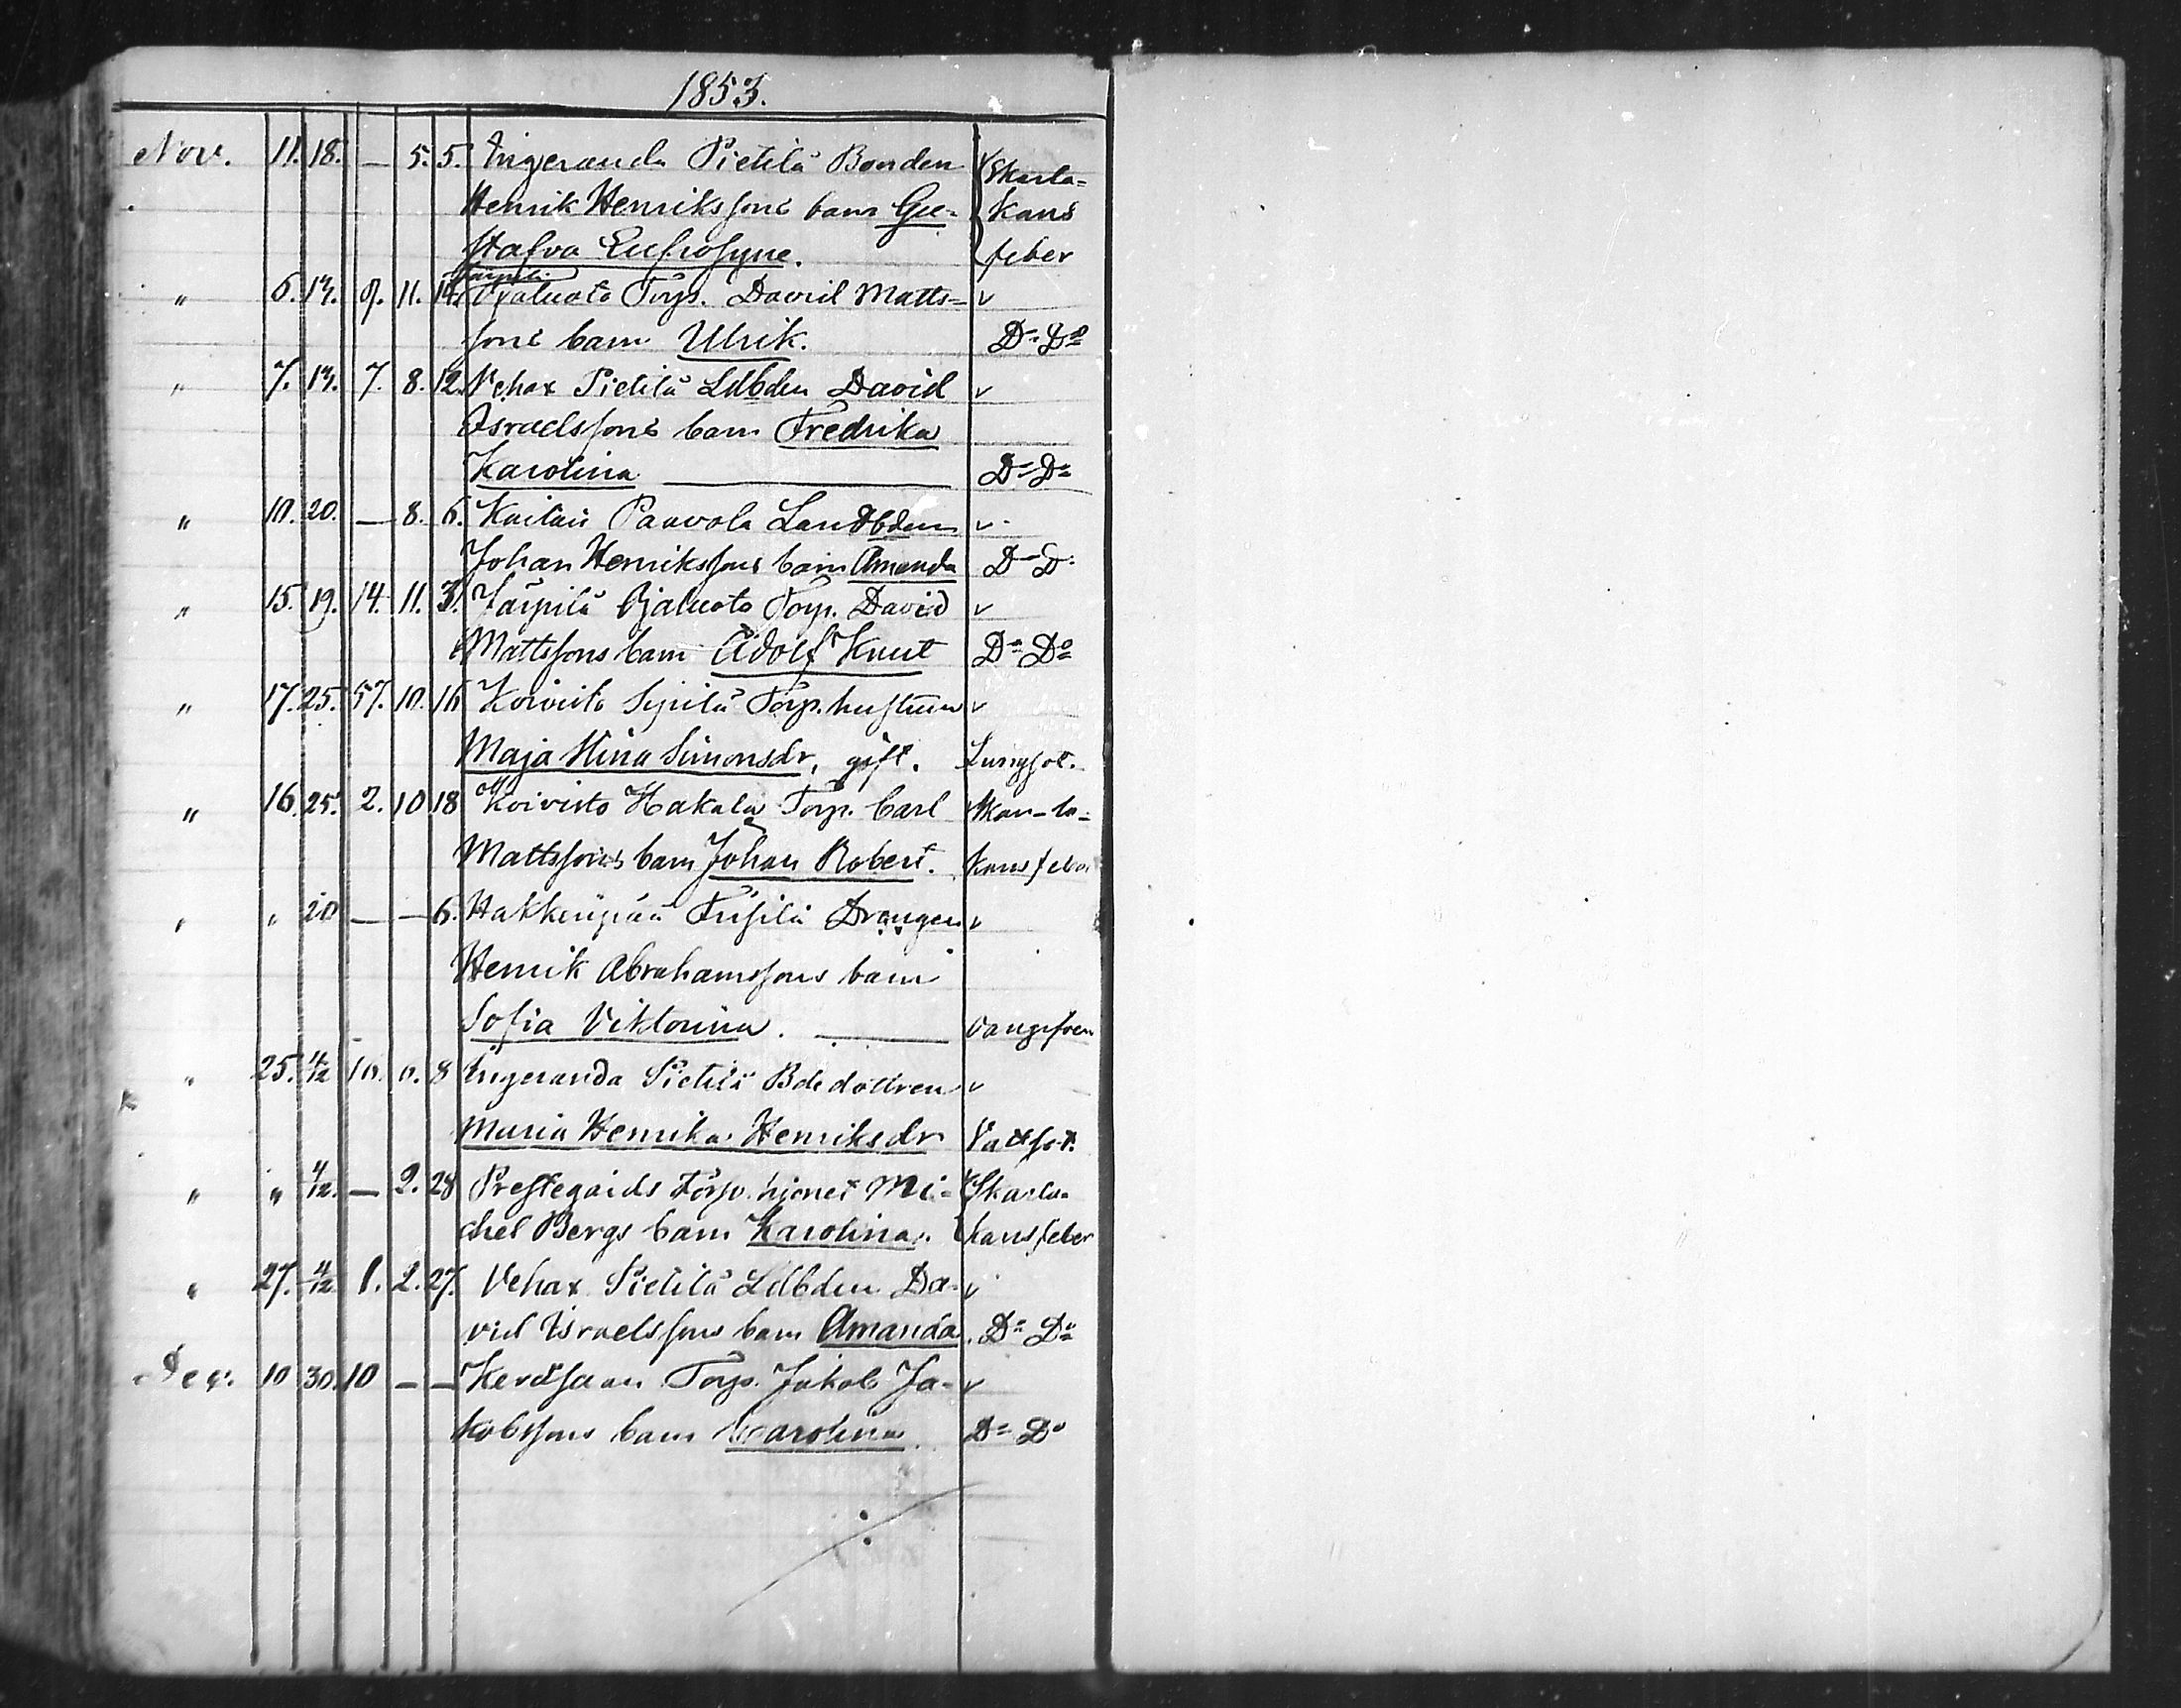 1853.
Nov. 11. 18. — 5. 5. Ingeranda Pietilä Bonden Skarla-
Henrik Henrikssons barn Gu- kans
stafva Eufrosyne. feber
Järpilä
" 6. 13. 9. 11. 14. Ojaluoto Torp. David Matts-
sons barn Ulrik. D:o D:o
" 7. 13. 7. 8. 12. Vehax Pietilä Ldbden David
Israelssons barn Fredrika
Karolina — D:o D:o
" 10. 20. — 8. 6. Kaitais Paavola Landbden
Johan Henrikssons barn Amanda D:o D:o
" 15. 19. 14. 11. 3. Järpilä Ojaluoto Torp. David
Mattssons barn Adolf Knut D:o D:o
" 17. 25. 57. 10. 16 Koivisto Sipilä Torp. hustrun
Maja Stina Simonsdr, gift. Lungsot.
" 16. 25. 2. 10 18 Koivisto Hakala Torp. Carl Skar-la-
Mattssons barn Johan Robert. kans feber
" " 20 — — 6. Hakkenpää Drängen
Henrik Abrahamssons barn
Sofia Viktorina. —
" 25. 4/12 16. 0. 8 Ingeranda Pietilä Bde dottren
Maria Henrika Henriksdr Vattsot.
" " 4/12. — 2. 28 Prestegårds Torp. hjonet Mi- Skarla-
chel Bergs barn Karolina. kans feber
" 27. 4/12 1. 2. 27. Vehax Pietilä Ldbden Da-
vid Israelssons barn Amanda. D:o D:o
Dec. 10 30. 10 — — Torp. Jakob Ja-
kobssons barn Karolina. D:o D:o